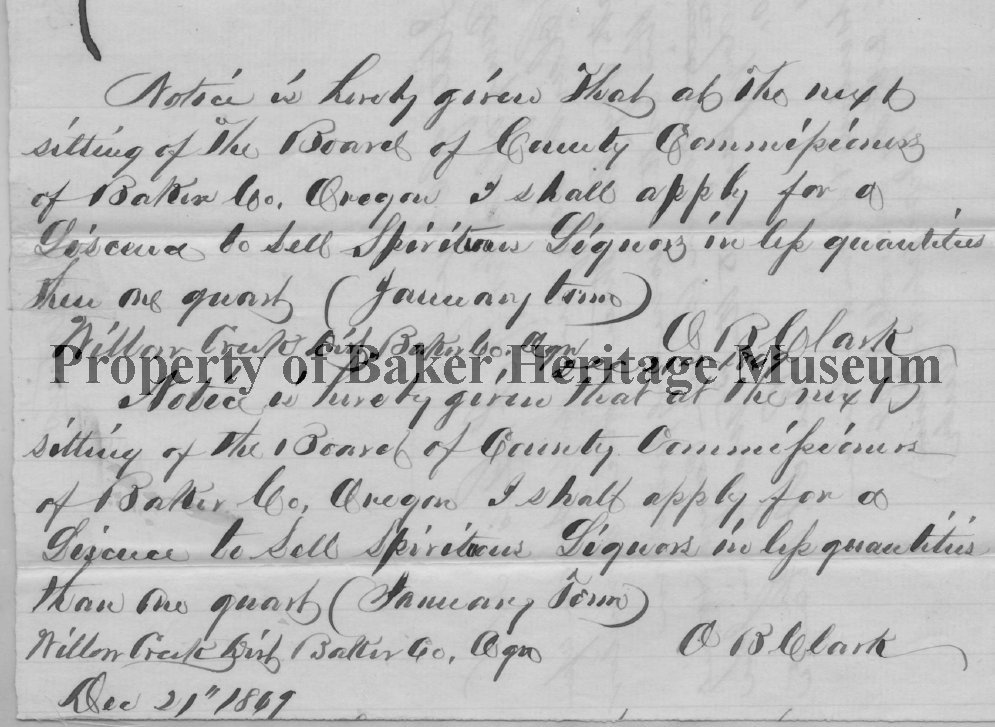 Notice is hereby given That at The next
sitting of The Board of County Commissioners
of Baker Co, Oregon I shall apply for a
Liscence to Sell Spiritous Liquors in less quantities
then one quart (January term)
Willow Creek Dist Baker Co, Ogn O B Clark
Property of Baker Heritage Museum
Notice is hereby given that at the next
sitting of The Board of County Commissioners
of Baker Co, Oregon I shall apply for a
Liscence to Sell Spiritous Liquors in less quantities
than one quart (January Term)
Willow Creek Dist Baker Co, Ogn O B Clark
Dec 21" 1869